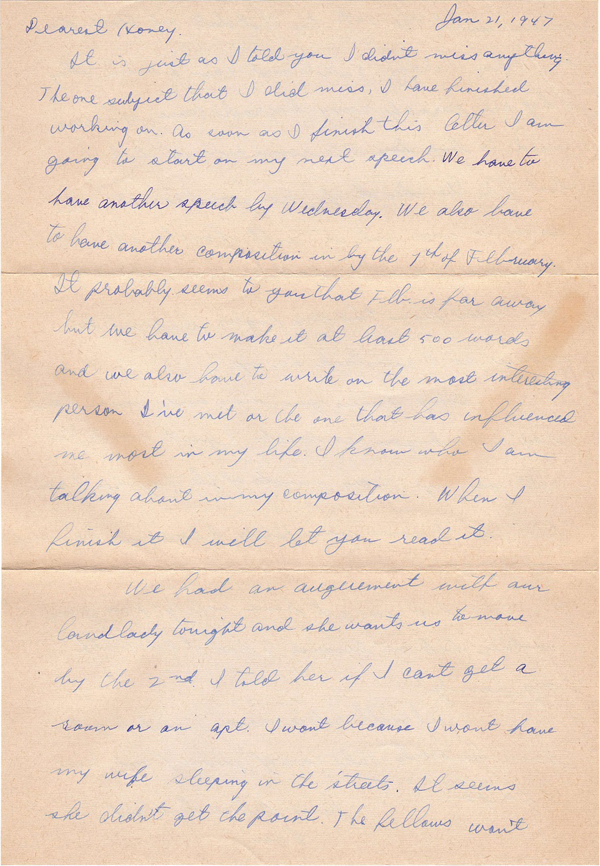 Jan 21, 1947
Dearest Honey.
It is just as I told you I didn't miss anything.
The one subject that I did miss, I have finished
working on. As soon as I finish this letter I am
going to start on my next speech. We have to
have another speech by Wednesday. We also have
to have another composition in by the 7th of Filbruary.
It probably seems to you that Filb. is far away
but we have to make it at least 500 words
and we also have to write on the most interesting
person I've met or the one that has influenced
me most in my life. I know who I am
talking about in my composition. When I
finish it I will let you read it.
We had an auguement with our
landlady tonight and she wants us to move
by the 2nd I told her if I cant get a
room or an apt. I wont because I wont have
my wife sleeping in the streets. It seems
she didn't get the point. The fellows won't